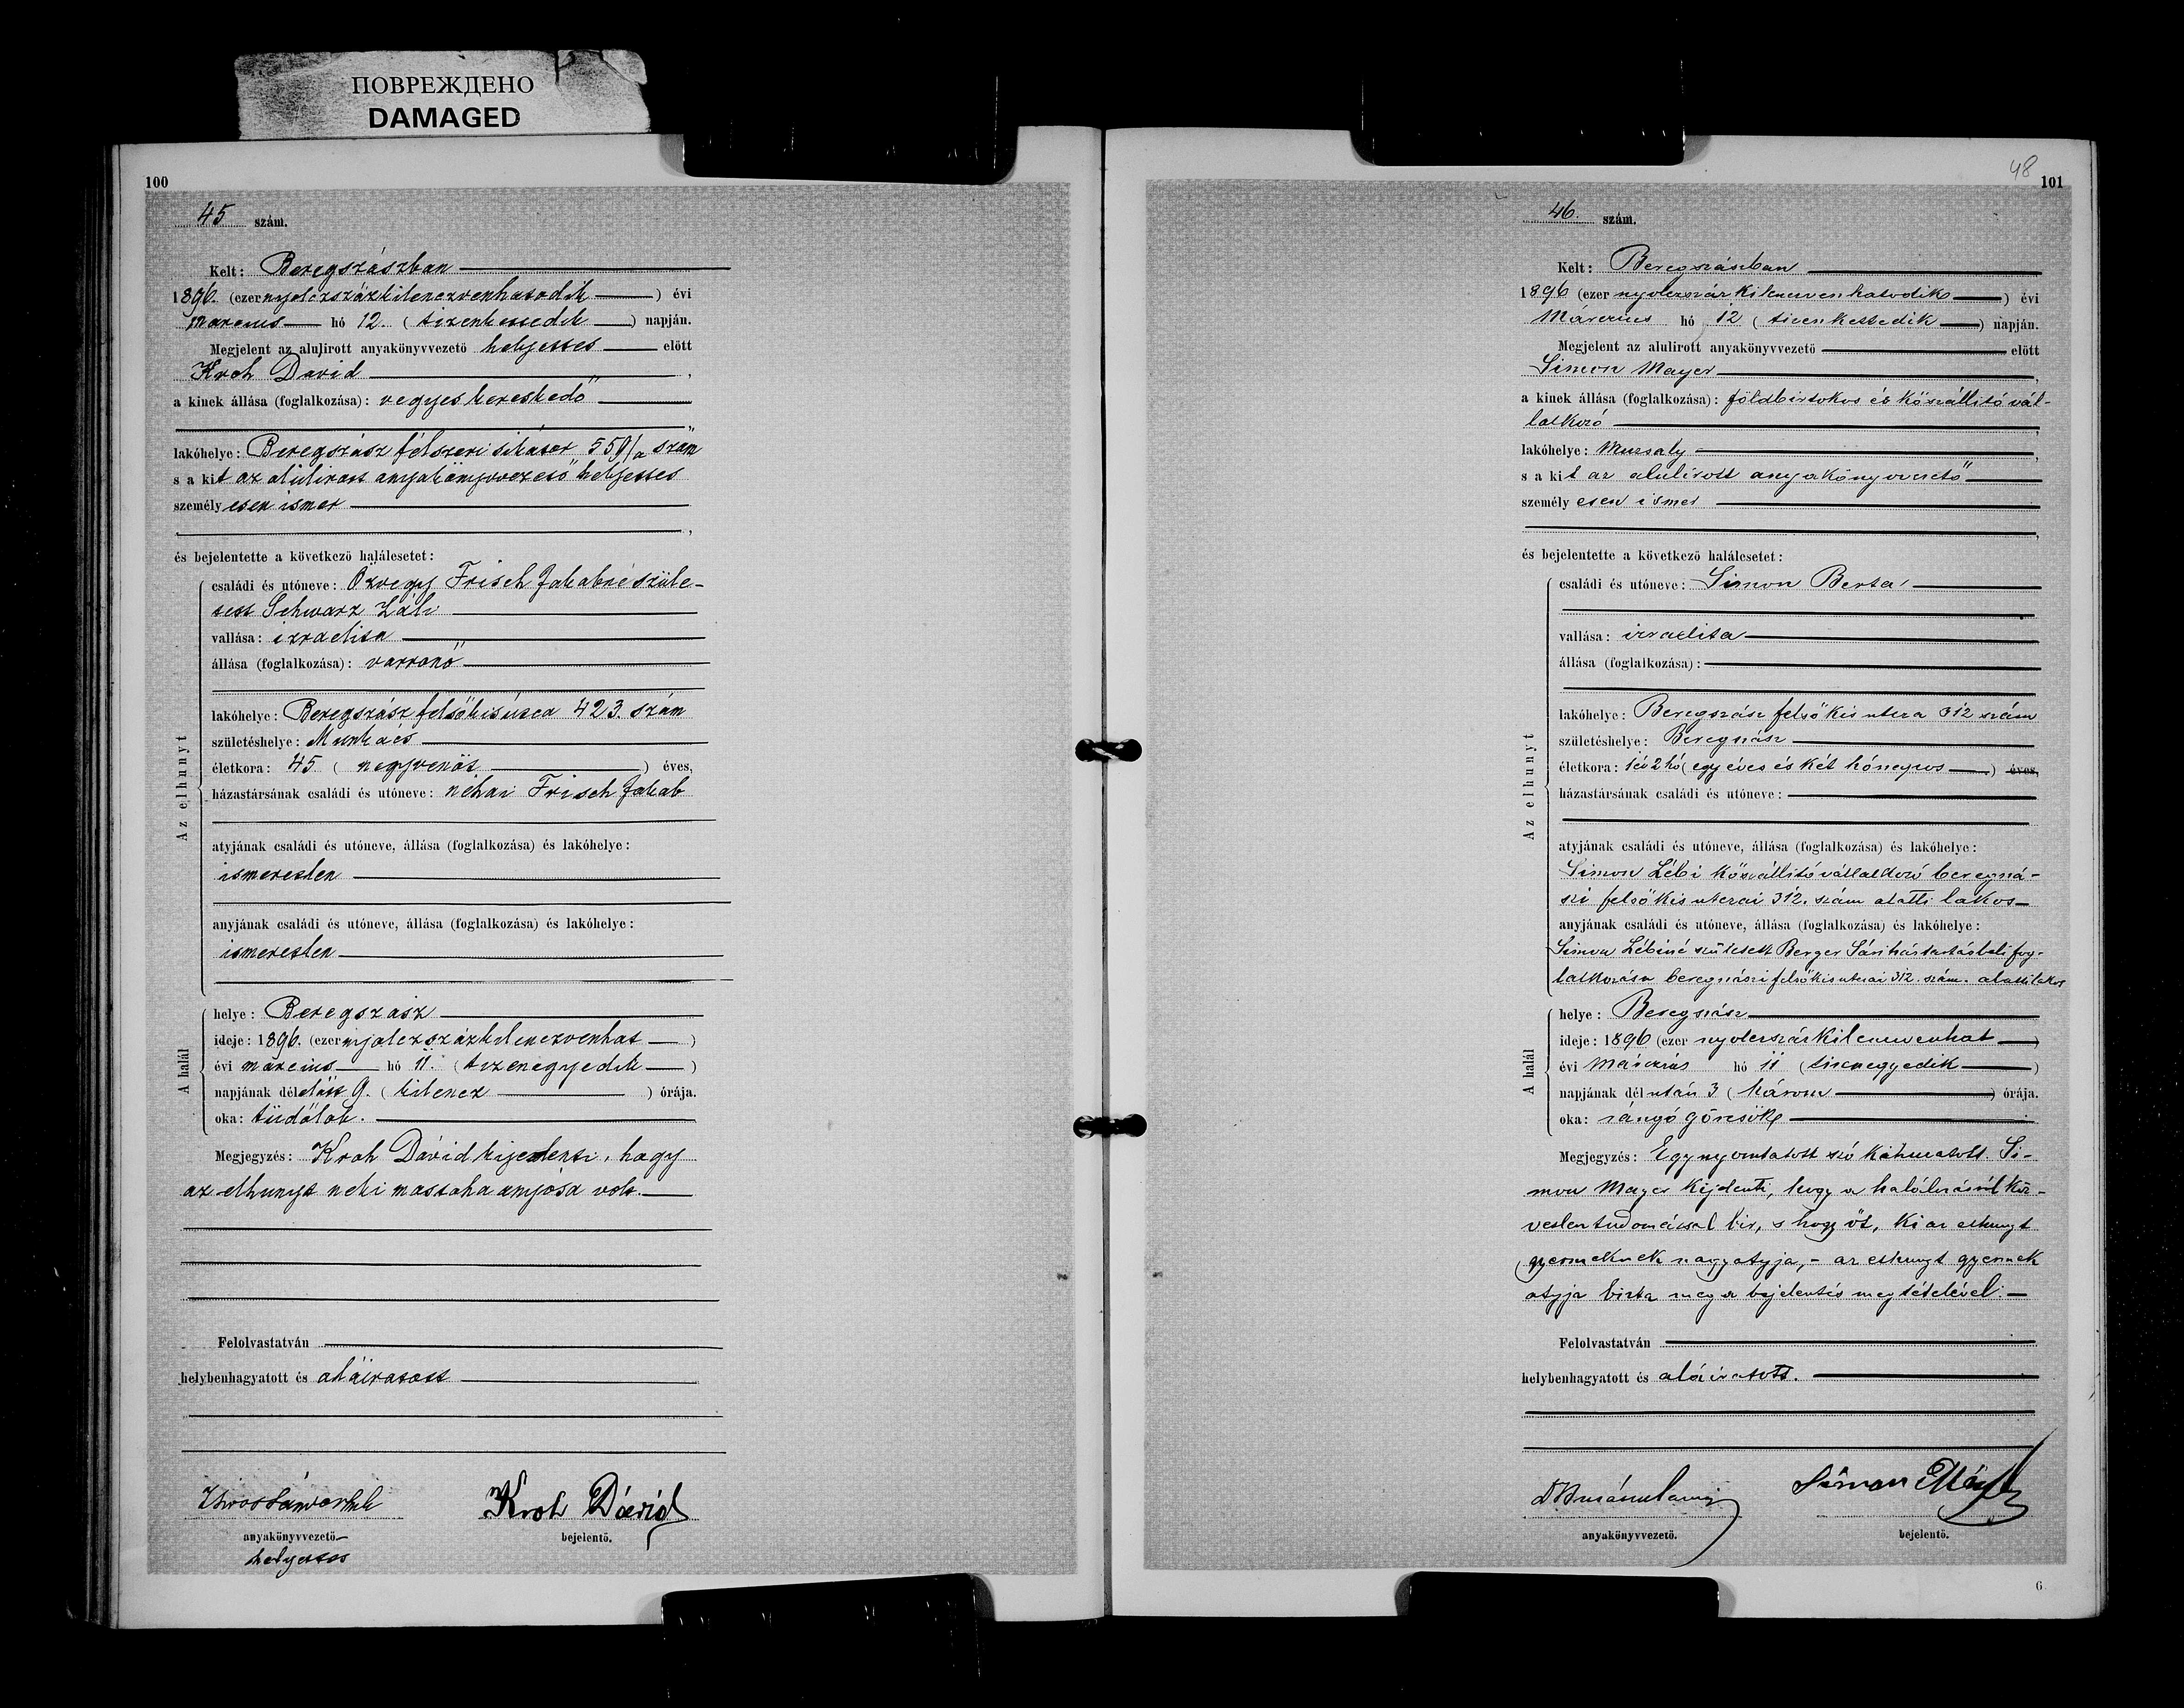 ПОВРЕЖДЕНО
DAMAGED
100
45 szám.
Kelt: Beregszászban
1896. (ezer nyolczszázkilenczvenhatodik) évi
marcius hó 12. (tizenkettedik) napján.
Megjelent az alulirott anyakönyvvezető helyettes előtt
Kroh Dávid,
a kinek állása (foglalkozása): vegyeskereskedő
lakóhelye: Beregszász félszeri sikátor 550/a szám
s a kit az alulirott anyakönyvvezető helyettes
személyesen ismer
és bejelentette a következő halálesetet:
Az elhunyt
családi és utóneve: Özvegy Frisch Jakabné szüle-
tett Schwarz Záli
vallása: izraelita
állása (foglalkozása): varronő
lakóhelye: Beregszász felsőkisútcza 423. szám
születéshelye: Munkács
életkora: 45 (negyvenöt) éves,
házastársának családi és utóneve: néhai Frisch Jakab
atyjának családi és utóneve, állása (foglalkozása) és lakóhelye:
ismeretlen
anyjának családi és utóneve, állása (foglalkozása) és lakóhelye:
ismeretlen
A halál
helye: Beregszász
ideje: 1896. (ezer nyolczszázkilenczvenhat)
évi márczius hó 11. (tizenegyedik)
napjának délelőtt 9. (kilencz) órája.
oka: tüdőlob.
Megjegyzés: Kroh Dávid kijelenti, hogy
az elhunyt neki mostoha anyósa volt.
Felolvastatván
helybenhagyatott és aláiratott
anyakönyvvezető
helyettes
Kroh Dávid
bejelentő.
48
101
46 szám.
Kelt: Beregszászban
1896 (ezer nyolczszáz kilenczvenhatodik) évi
Márczius hó 12 (tizenkettedik) napján.
Megjelent az alulirott anyakönyvvezető előtt
Simon Mayer,
a kinek állása (foglalkozása): földbirtokos és kőszállitó vál-
lalkozó
lakóhelye: Muzsaly,
s a kit az alulirott anyakönyvvezető
személyesen ismer
és bejelentette a következő halálesetet:
Az elhunyt
családi és utóneve: Simon Berta
vallása: izraelita
állása (foglalkozása):
lakóhelye: Beregszász felső kis utcza 312 szám
születéshelye: Beregszász
életkora: 1 év 2 hó (egy éves és két hónapos) éves,
házastársának családi és utóneve:
atyjának családi és utóneve, állása (foglalkozása) és lakóhelye:
Simon Lébi kőszállitó vállalkozó beregszá-
szi felső kis utczai 312. szám alatti lakos
anyjának családi és utóneve, állása (foglalkozása) és lakóhelye:
Simon Lébiné született Berger Sári háztartásbeli fog-
lalkozásu beregszászi felső kis utczai 312. szám. alatti lakos
A halál
helye: Beregszász
ideje: 1896 (ezer nyolczszázkilenczvenhat)
évi márczius hó 11 (tizenegyedik)
napjának délután 3 (három) órája.
oka: rángó görcsök
Megjegyzés: Egy nyomtatott szó kihuzatott. Si-
mon Mayer kijelenti, hogy a halálozásról köz-
vetlen tudomással bir, s hogy őt, ki az elhunyt
gyermeknek nagyatyja, - az elhunyt gyermek
atyja bizta meg a bejelentés megtételével.
Felolvastatván
helybenhagyatott és aláiratott.
anyakönyvvezető.
Simon
bejelentő.
6